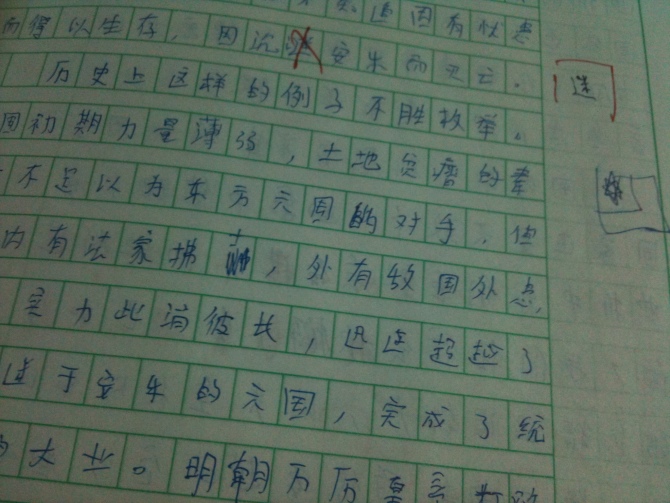 因有忧患
而得以生存，因沉 安乐而灭亡。
历史上这样的例子不胜枚举。
迷
周初期力量薄弱，土地贫瘠的秦
不足以为东方六国的对手，但
内有法家拂士，外有敌国外患，
实力此消彼长，迅速超越了
迷于安乐的六国，完成了统
大业。明朝万历